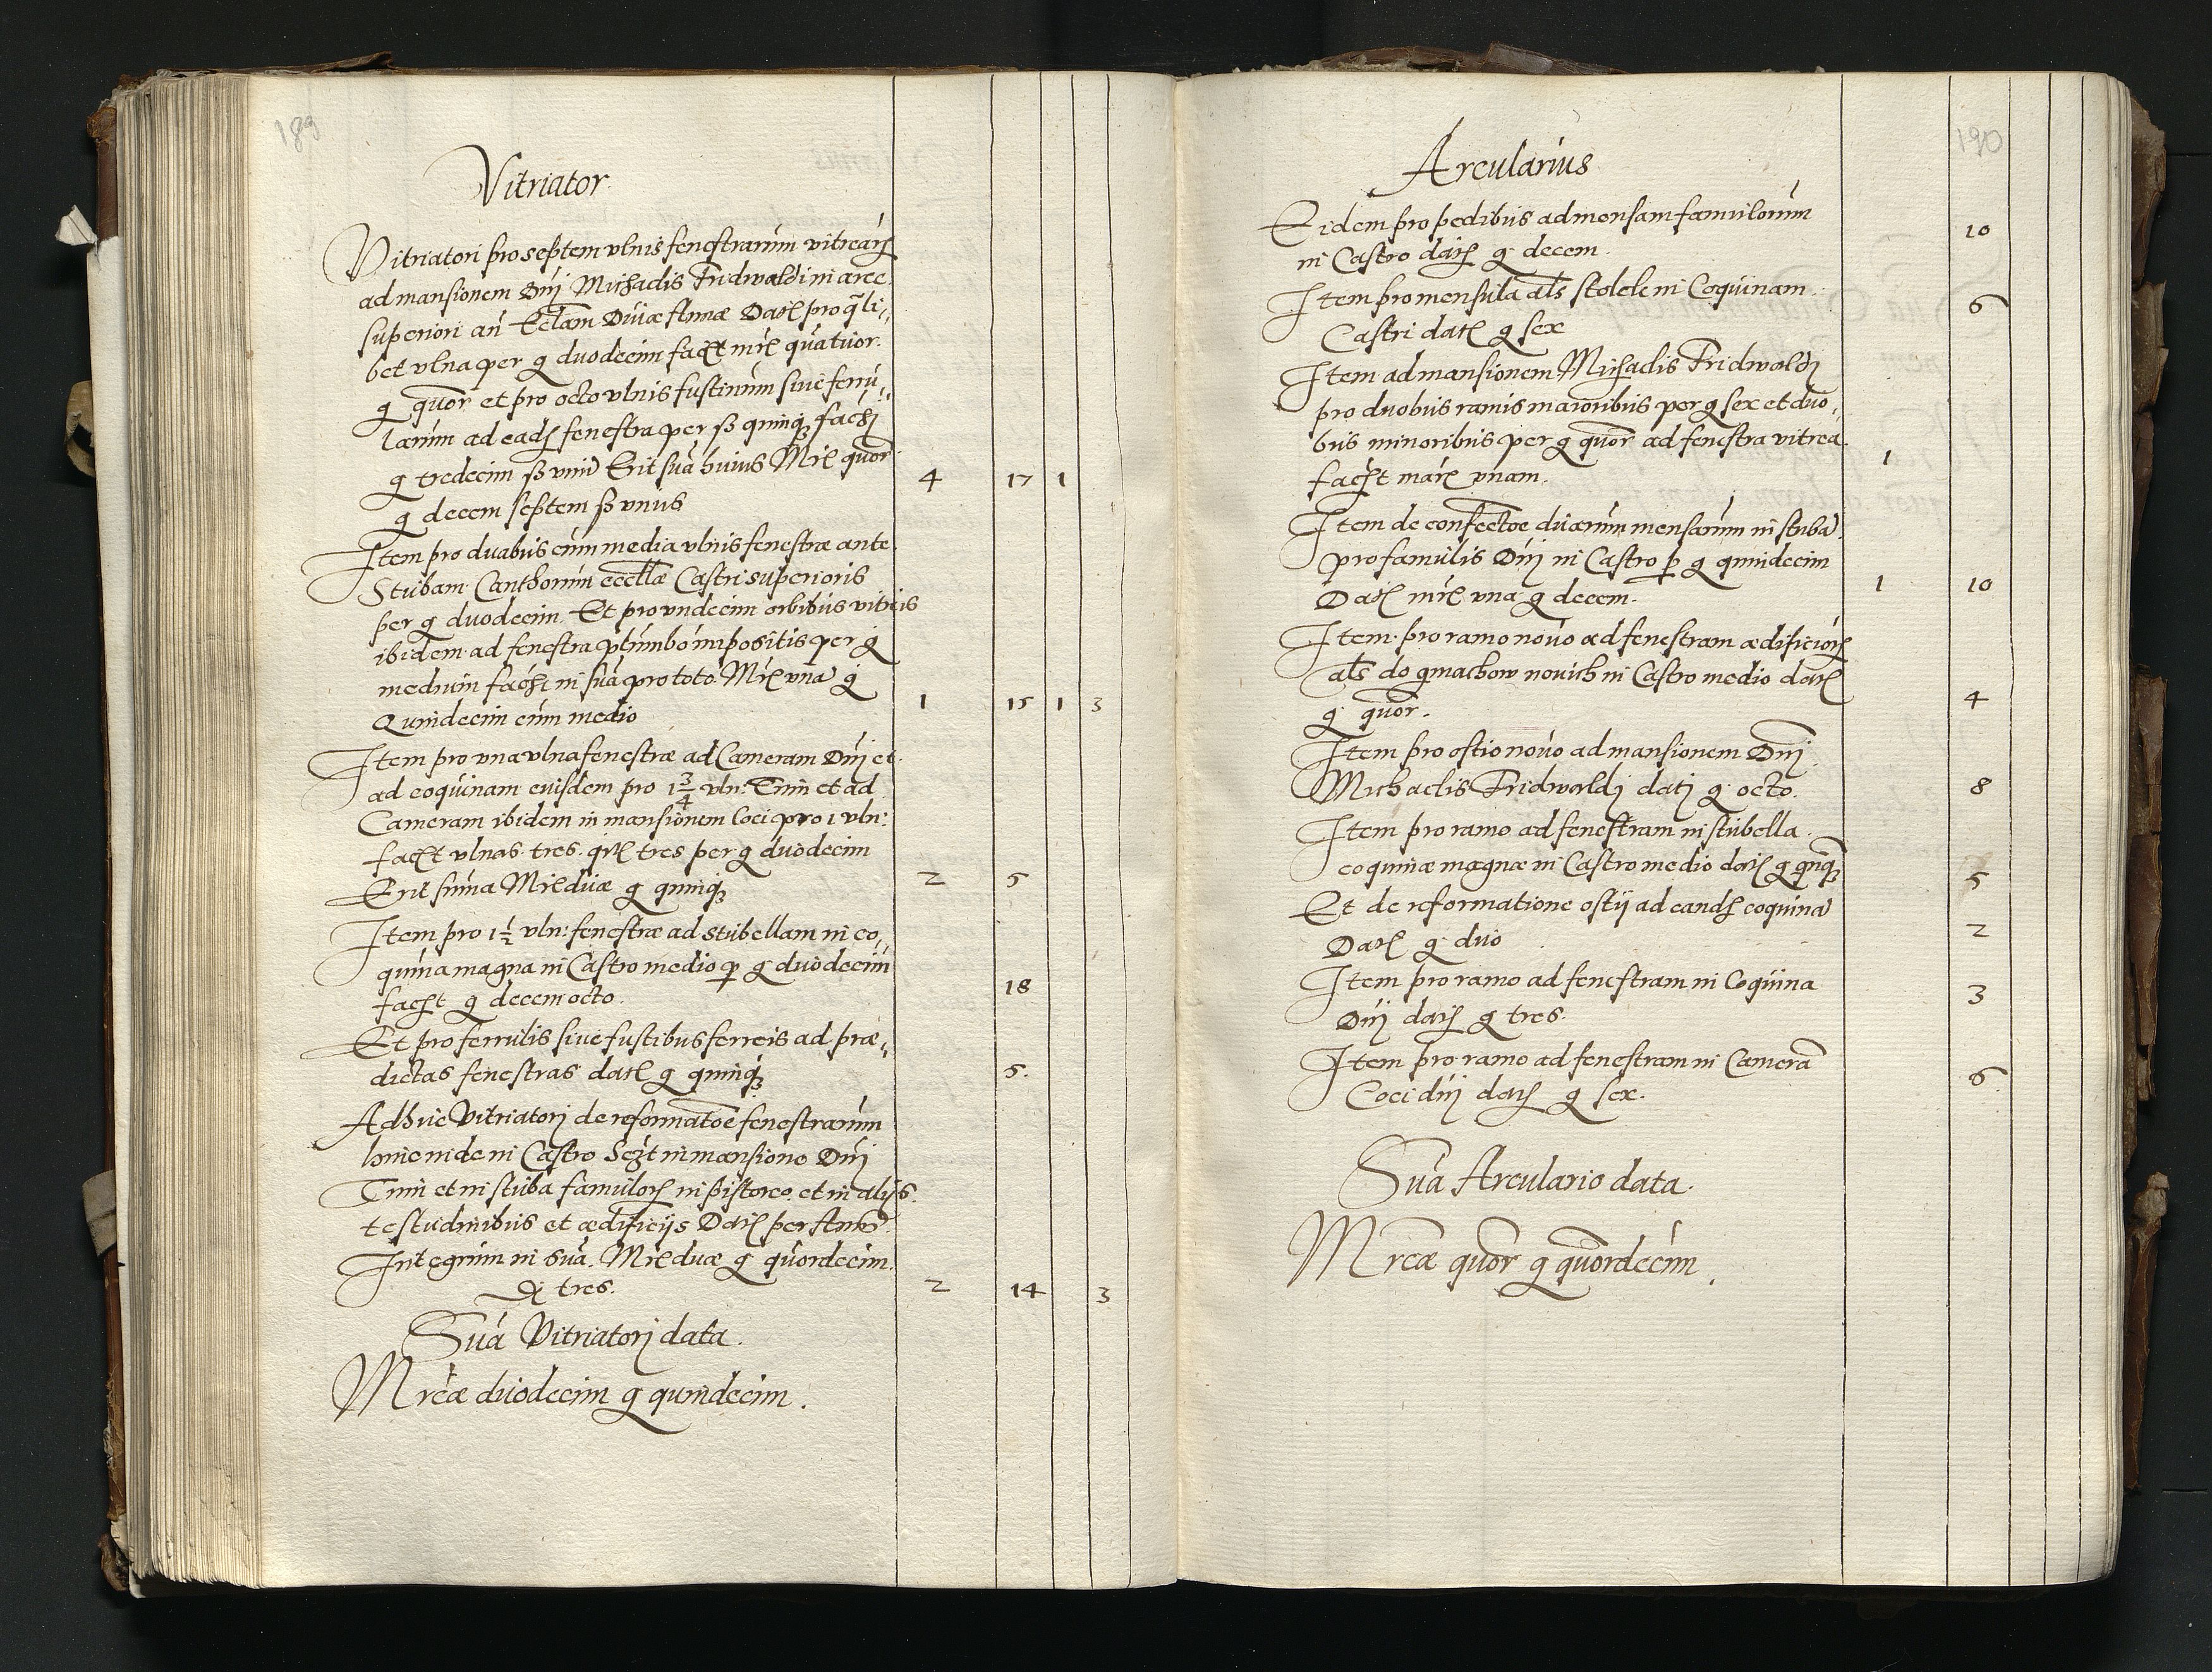 189
Vitriator
Vitriatori pro septem ulnis fenestrarum vitrearꝝ
ad mansionem Dnj Michaelis Fridwaldi in arce
superiori an Ecclam Divæ Annæ Datꝭ pro qᷓli„
bet ulna per g duodecim facꝭt mrꝭ quatuor
g quor et pro octo ulnis fustinum sive ferru„
larum ad eadꝭ fenestra per ß quinqꝫ
g tredecim ß unū Erit sua huius Mrꝭ quor
g decem septem ß unus
4 17 1
Item pro duabus cum media ulnis fenestræ ante
Stubam Canthorum Castri superioris
per g duodecim Et pro undecim orbibus vitreis
ibidem ad fenestra plumbo impositis per g
medium in sua pro toto Mrꝭ una g
Quindecim cum medio
1 15 1 3
Item pro una ulna fenestræ ad Cameram Dnj et
ad coquinam eiusdem pro 1 3/4 uln: et ad
Cameram ibidem in mansionem Coci pro 1 uln:
facꝭt ulnas tres tres per g duodecim
Erit suma Mrꝭ duæ g quinqꝫ
2 5
Item pro 1 1/2 uln: fenestræ ad stubellam in co„
quina magna in Castro medio ꝑ g duodecim
facꝭt g decem octo.
18
Et pro ferrulis sive fustibus ferreis ad præ„
dictas fenestras datꝭ g quinqꝫ
5.
Adhuc Vitriatorj de reformatoe fenestrarum
hinc inde in Castro in mansione Dnj
et in stuba famulorꝝ in pistorea et in alijs
testudinibus et ædificijs Datꝭ per
Integrum in sua. Mrꝭ duæ g quordecim
tres.
2 14 3
Sua Vitriatorj data.
Mrcæ duodecim g quindecim.
190
Arcularius
Eidem pro pedibus ad mensam famulorum
in Castro datꝭ g decem.
10
Item pro mensula als stolek in Coquinam
Castri datꝭ g sex
6
Item ad mansionem Michaelis Fridwaldj
pro duobus ramis maioribus per g sex et duo„
bus minoribus per g quor ad fenestra vitrea
facꝭt marꝭ unam.
1
Item de confectoe duarum mensarum in stuba
pro famulis Dnj in Castro ꝑ g quindecim
Datꝭ mrꝭ una g decem.
1 10
Item pro ramo novo ad fenestram ædificiorꝝ
als do gmachow novich in Castro medio datꝭ
g quor.
4
Item pro ostio novo ad mansionem Dnj
Michaelis Fridwaldj datj g octo.
8
Item pro ramo ad fenestram in stubella
coquinæ magnæ in Castro medio datꝭ g qnqꝫ
5
Et de reformatione ostij ad eandꝭ coquinā
Datꝭ g duo
2
Item pro ramo ad fenestram in Coquina
Dnj datꝭ g tres.
3
Item pro ramo ad fenestram in Camerā
Coci dnj datꝭ g sex.
6
Sua Arculario data.
Mrcæ quor g quordecim.